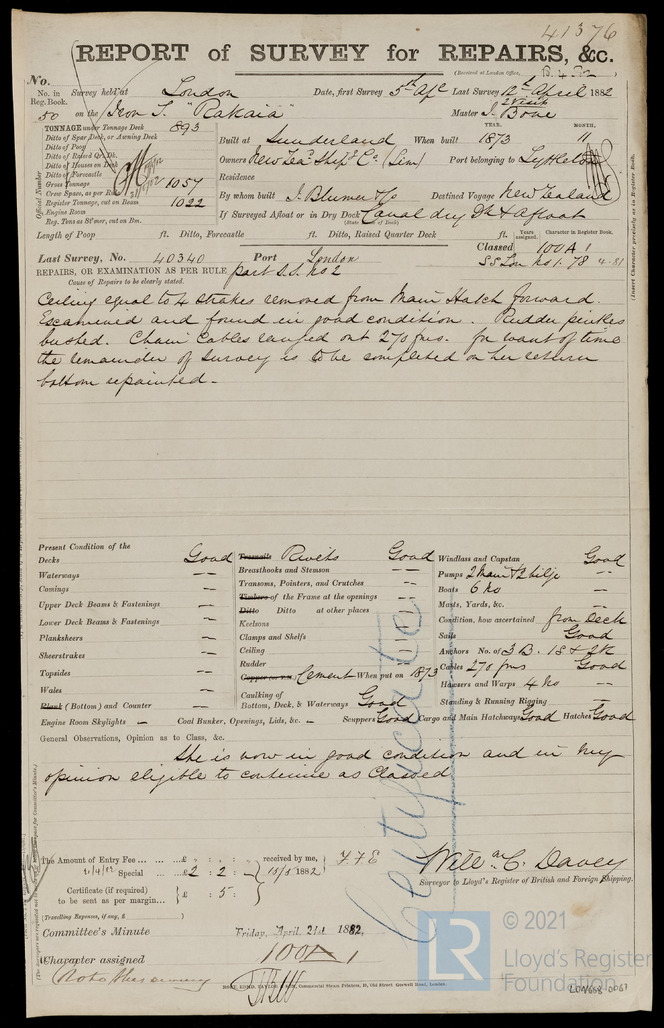 41376
REPORT of SURVEY for REPAIRS, &c.
(Received at London Office,
No.
No. in Reg. Book. Survey held at London Date, first Survey 5th Apl Last Survey 12th April 1882
2 Visits
50 on the Iron S. "Rakaia" Master J. Bone
TONNAGE under Tonnage Deck 893
Ditto of Spar Deck, or Awning Deck
Ditto of Poop
Ditto of Raised Qr. Dk.
Ditto of Houses on Deck
Ditto of Forecastle
Gross Tonnage 1057
Crew Space, as per Rule
Register Tonnage, cut on Beam 1022
Engine Room
Reg. Tons as St'mer, cut on Bm.
Official Number
YEAR. MONTH.
Built at Sunderland When built 1873 11
Owners New Zead Shipg Co (Lim) Port belonging to Lyttleton
Residence
By whom built J. Blumer & Co Destined Voyage New Zealand
If Surveyed Afloat or in Dry Dock Canal dry Dk & Afloat
(State name of Dock)
(Insert Character precisely as in Register Book.
Length of Poop ft. Ditto, Forecastle ft. Ditto, Raised Quarter Deck ft.
Years assigned. Character in Register Book,
Classed 100 A 1
Last Survey, No. 40340 Port London
SS Lon No 1. 78 4.81
REPAIRS, OR EXAMINATION AS PER RULE part S.S. No 2
Cause of Repairs to be clearly stated.
Ceiling equal to 4 strakes removed from Main Hatch forward.
Examined and found in good condition. Rudder pintles
bushed. Chain Cables ranged out 270 fms. for want of time
the remainder of survey is to be completed on her return
bottom repainted.
Present Condition of the
Decks Good
Waterways "
Comings "
Upper Deck Beams & Fastenings "
Lower Deck Beams & Fastenings "
Planksheers "
Sheerstrakes "
Topsides "
Wales "
Plank (Bottom) and Counter "
Engine Room Skylights –
Treenails Rivets Good
Breasthooks and Stemson "
Transoms, Pointers, and Crutches "
Timbers of the Frame at the openings "
Ditto Ditto at other places "
Keelsons "
Clamps and Shelfs "
Ceiling "
Rudder "
Cement When put on 1873
Caulking of Bottom, Deck, & Waterways Good
Coal Bunker, Openings, Lids, &c. –
Scuppers Good
Windlass and Capstan Good
Pumps 2 Main & Bilge "
Boats 6 No "
Masts, Yards, &c. "
Condition, how ascertained from Deck
Sails Good
Anchors No. of 3 B. 1 S & 2 K
Cables 270 fms Good
Hawsers and Warps 4 No "
Standing & Running Rigging "
Cargo and Main Hatchways Good Hatches Good
General Observations, Opinion as to Class, &c.
She is now in good condition and in my
opinion eligible to continue as Classed
Certificate
The Amount of Entry Fee ... £ : : received by me,
Special ... £2 : 2 :
Certificate (if required) to be sent as per margin... £ : 5 :
(Travelling Expenses, if any, £ )
Willm C. Davey
Surveyor to Lloyd's Register of British and Foreign Shipping.
Committee's Minute Friday, April 21st 1882,
Character assigned 100 A 1
© 2021
LR
Lloyd's Register
Foundation
LON668-0067